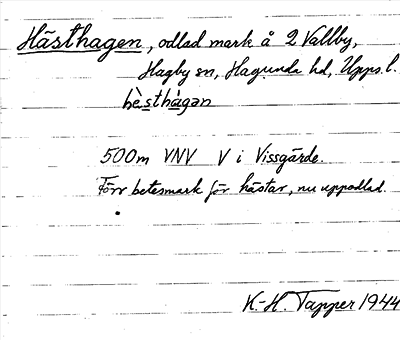 Hästhagen, odlad mark å 2 Vallby,
Hagby sn, Hagunda hd, Upps. l.
hè̀sthàgan
500m VNV V i Vissgärde.
Förr betesmark för hästar, nu uppodlad.
K.-H. Tapper 1944